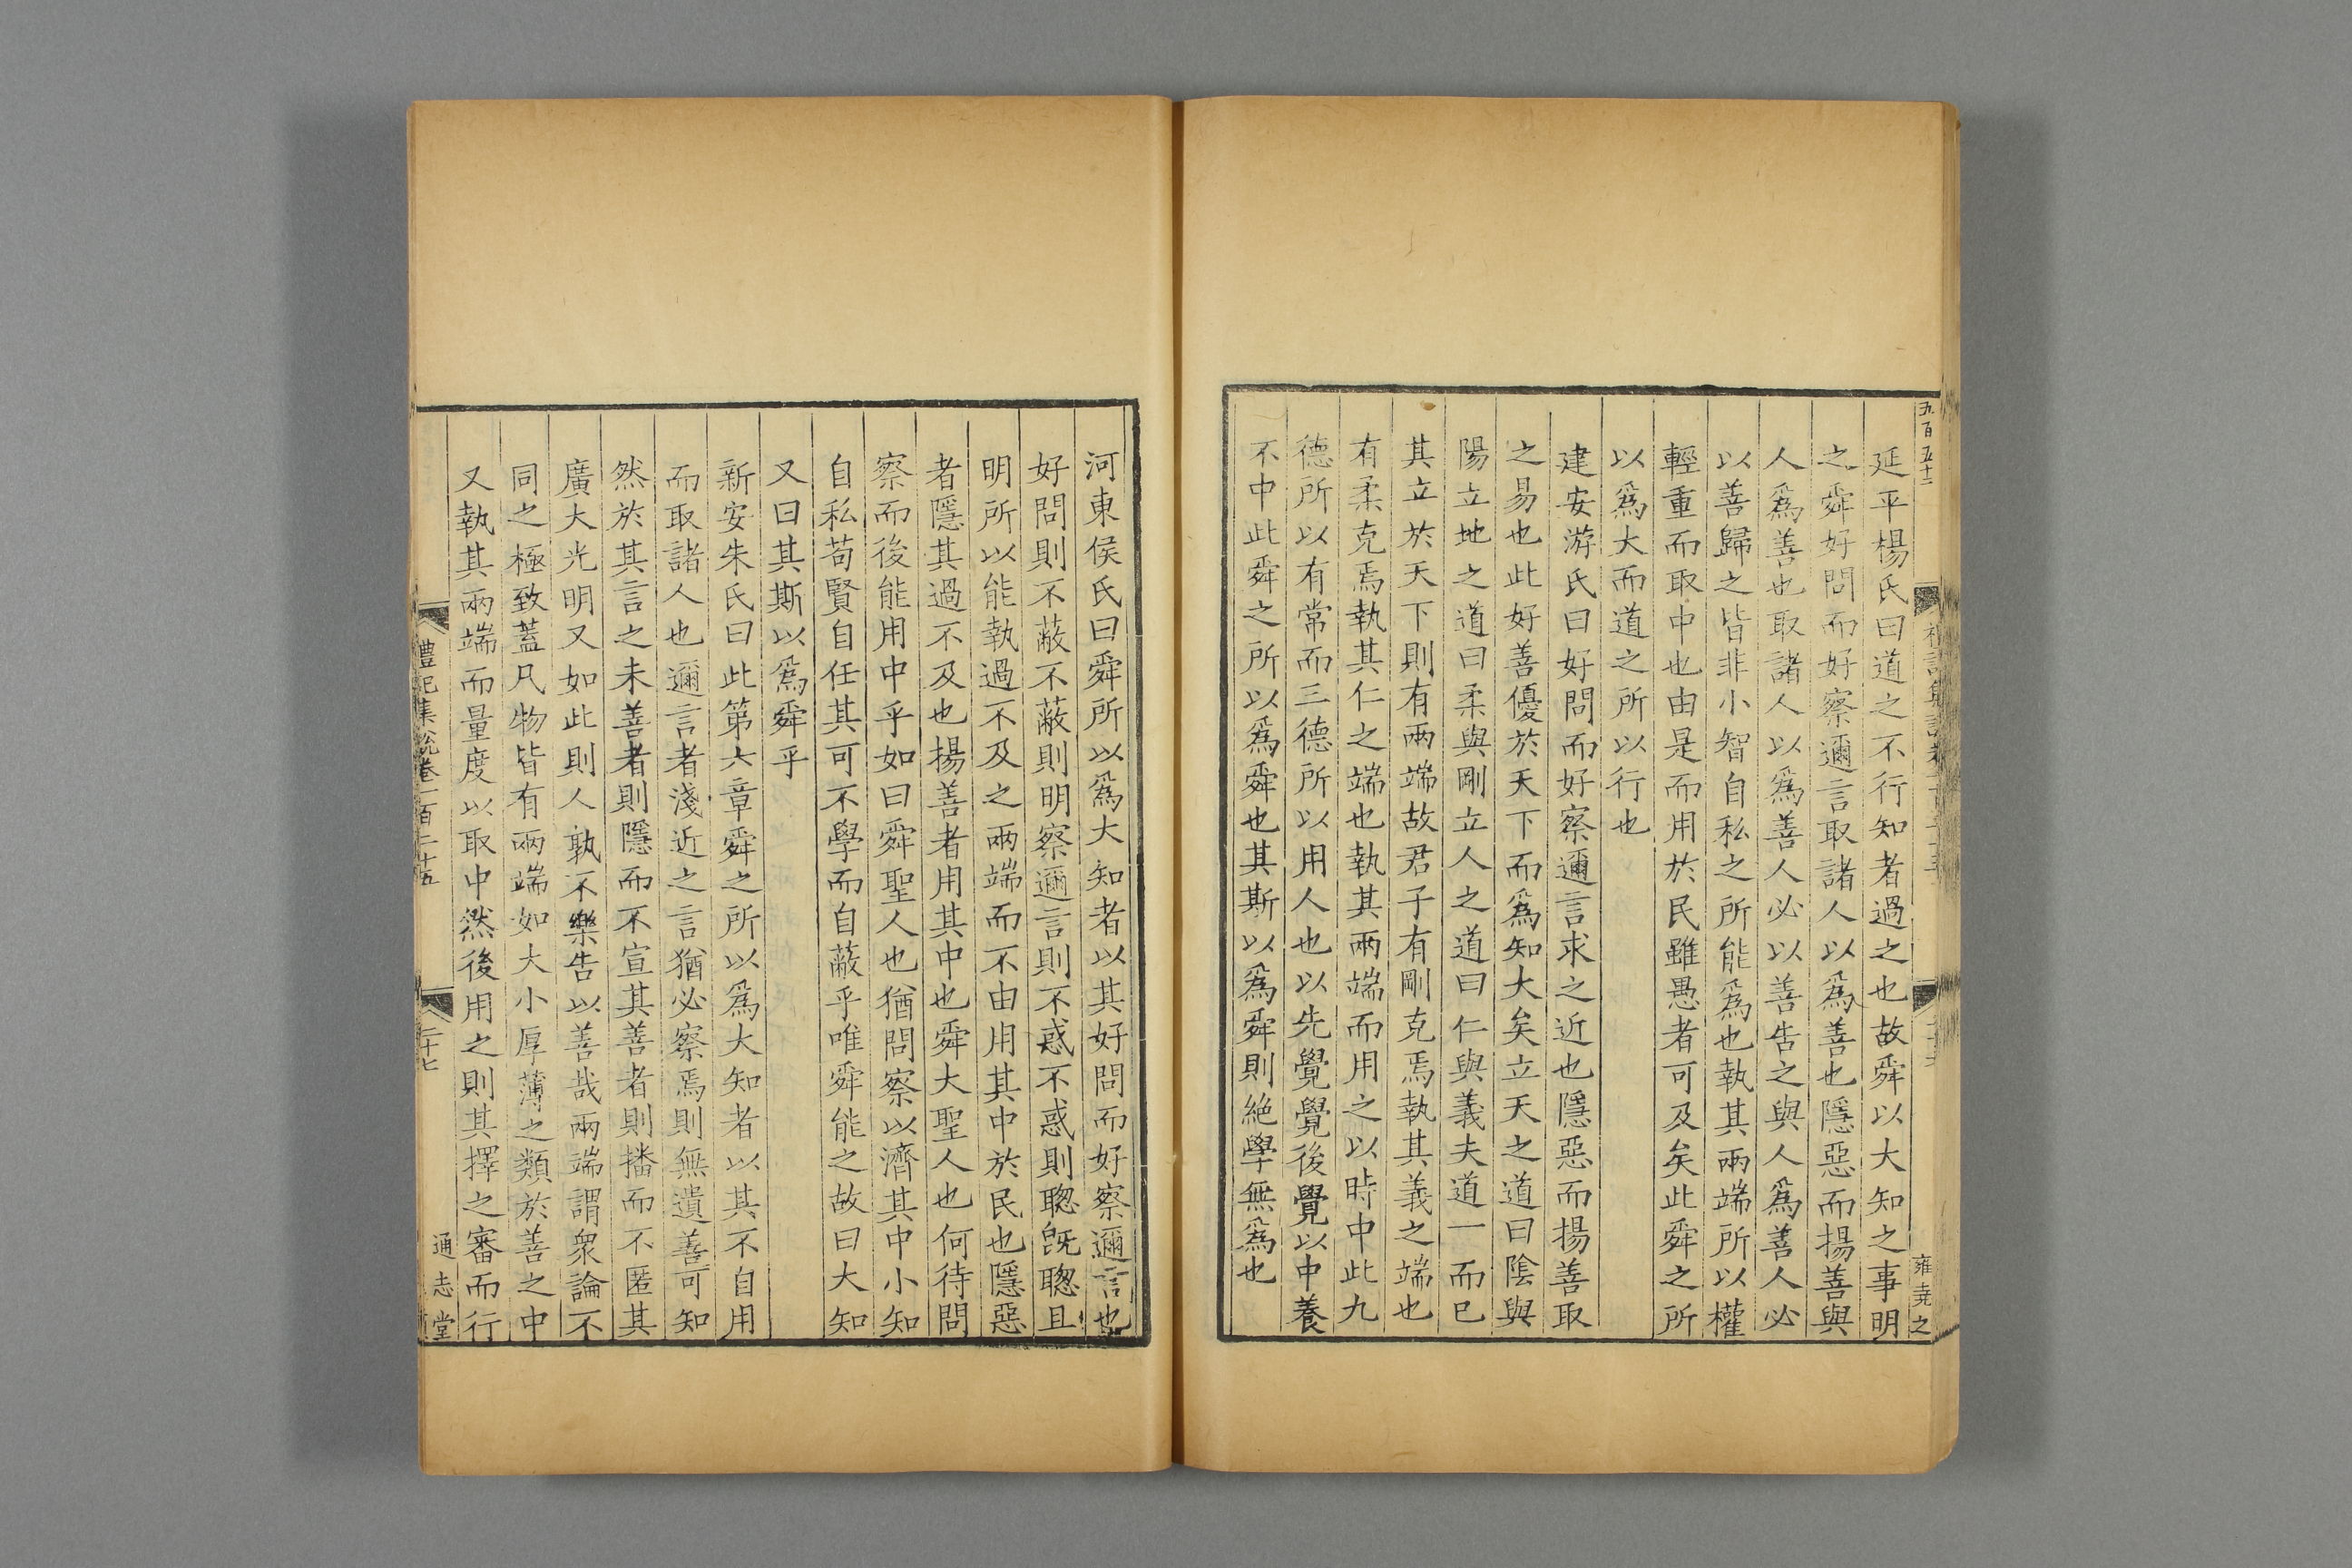 五百五十二
雍堯之
延平楊氏曰道之不行知者過之也故舜以大知之事明
之舜好問而好察邇言取諸人以爲善也隱惡而揚善與
人爲善也取諸人以爲善人必以善告之與人爲善人必
以善歸之皆非小智自私之所能爲也執其兩端所以權
輕重而取中也由是而用於民雖愚者可及矣此舜之所
以爲大而道之所以行也
建安游氏曰好問而好察邇言求之近也隱惡而揚善取
之易也此好善優於天下而爲知大矣立天之道曰陰與
陽立地之道曰柔與剛立人之道曰仁與義夫道一而已
其立於天下則有兩端故君子有剛克焉執其義之端也
有柔克焉執其仁之端也執其兩端而用之以時中此九
德所以有常而三德所以用人也以先覺覺後覺以中養
不中此舜之所以爲舜也其斯以爲舜則絶學無爲也
河東侯氏曰舜所以爲大知者以其好問而好察邇言也
好問則不蔽不蔽則明察邇言則不惑不惑則聰旣聰且
明所以能執過不及之兩端而不由用其中於民也隱惡
者隱其過不及也揚善者用其中也舜大聖人也何待問
察而後能用中乎如曰舜聖人也猶問察以濟其中小知
自私苟賢自任其可不學而自蔽乎唯舜能之故曰大知
又曰其斯以爲舜乎
新安朱氏曰此第六章舜之所以爲大知者以其不自用
而取諸人也邇言者淺近之言猶必察焉則無遺善可知
然於其言之未善者則隱而不宣其善者則播而不匿其
廣大光明又如此則人孰不樂告以善哉兩端謂衆論不
同之極致蓋凡物皆有兩端如大小厚薄之類於善之中
又執其兩端而量度以取中然後用之則其擇之審而行
禮記集說卷一百二十五
二十七
通志堂